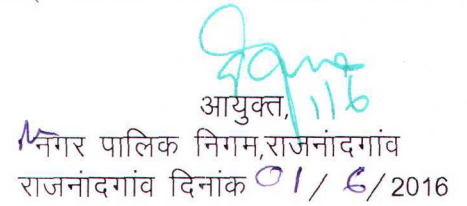 आयुक्त, 1/6
नगर पालिक निगम,राजनांदगांव
राजनांदगांव दिनांक 01/6/2016